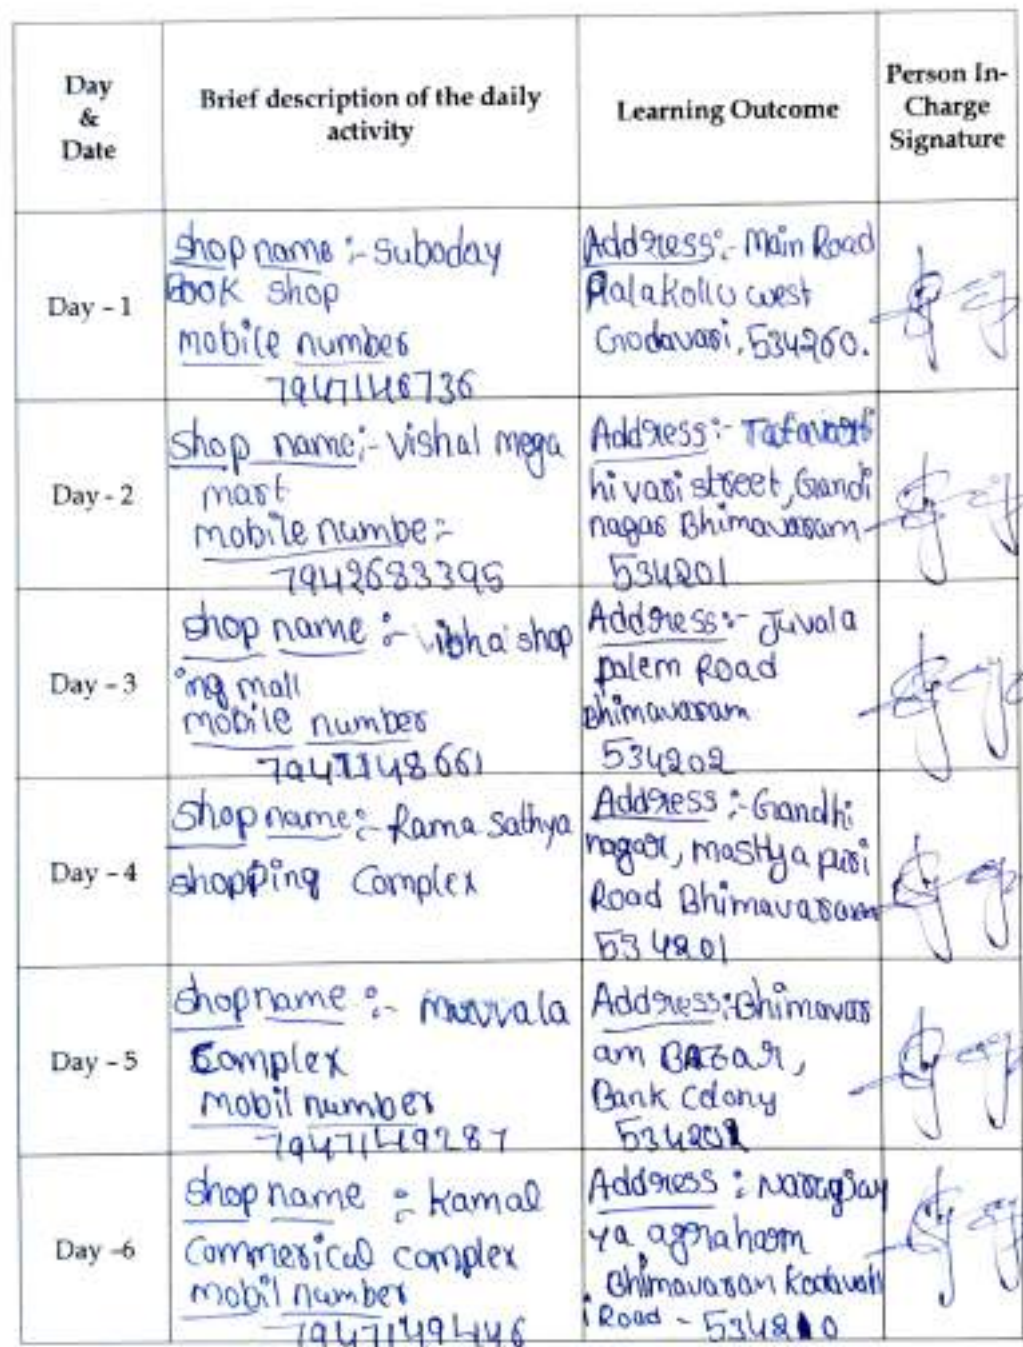 Day
&
Date
Brief description of the daily
activity
Learning Outcome
Person In-
Charge
Signature
Day - 1
Shop name :- Suboday
Book shop
mobile number
7947146736
Address:- Main Road
Palakollu west
Godavari, 534260.
Day - 2
Shop name:- Vishal mega
mart
mobile numbe:-
7942683395
Address:-
hivari street, Gandi
nagar Bhimavaram
534201
Day - 3
shop name :- Visha shop
ing mall
mobile number
7947148661
Address:- Juvala
palem Road
Bhimavaram
534202
Day - 4
Shop name:- Rama Sathya
shopping Complex
Address :- Gandhi
nagar, mastya puri
Road Bhimavaram
534201
Day - 5
Shop name :- 
Complex
mobil number
7947149287
Address:- Bhimavar
am BAZAR,
Bank Colony
534202
Day -6
Shop name :- Kamal
Commerical complex
mobil number
7947149446
Address :
ya agraharm
Bhimavaram
i Road -